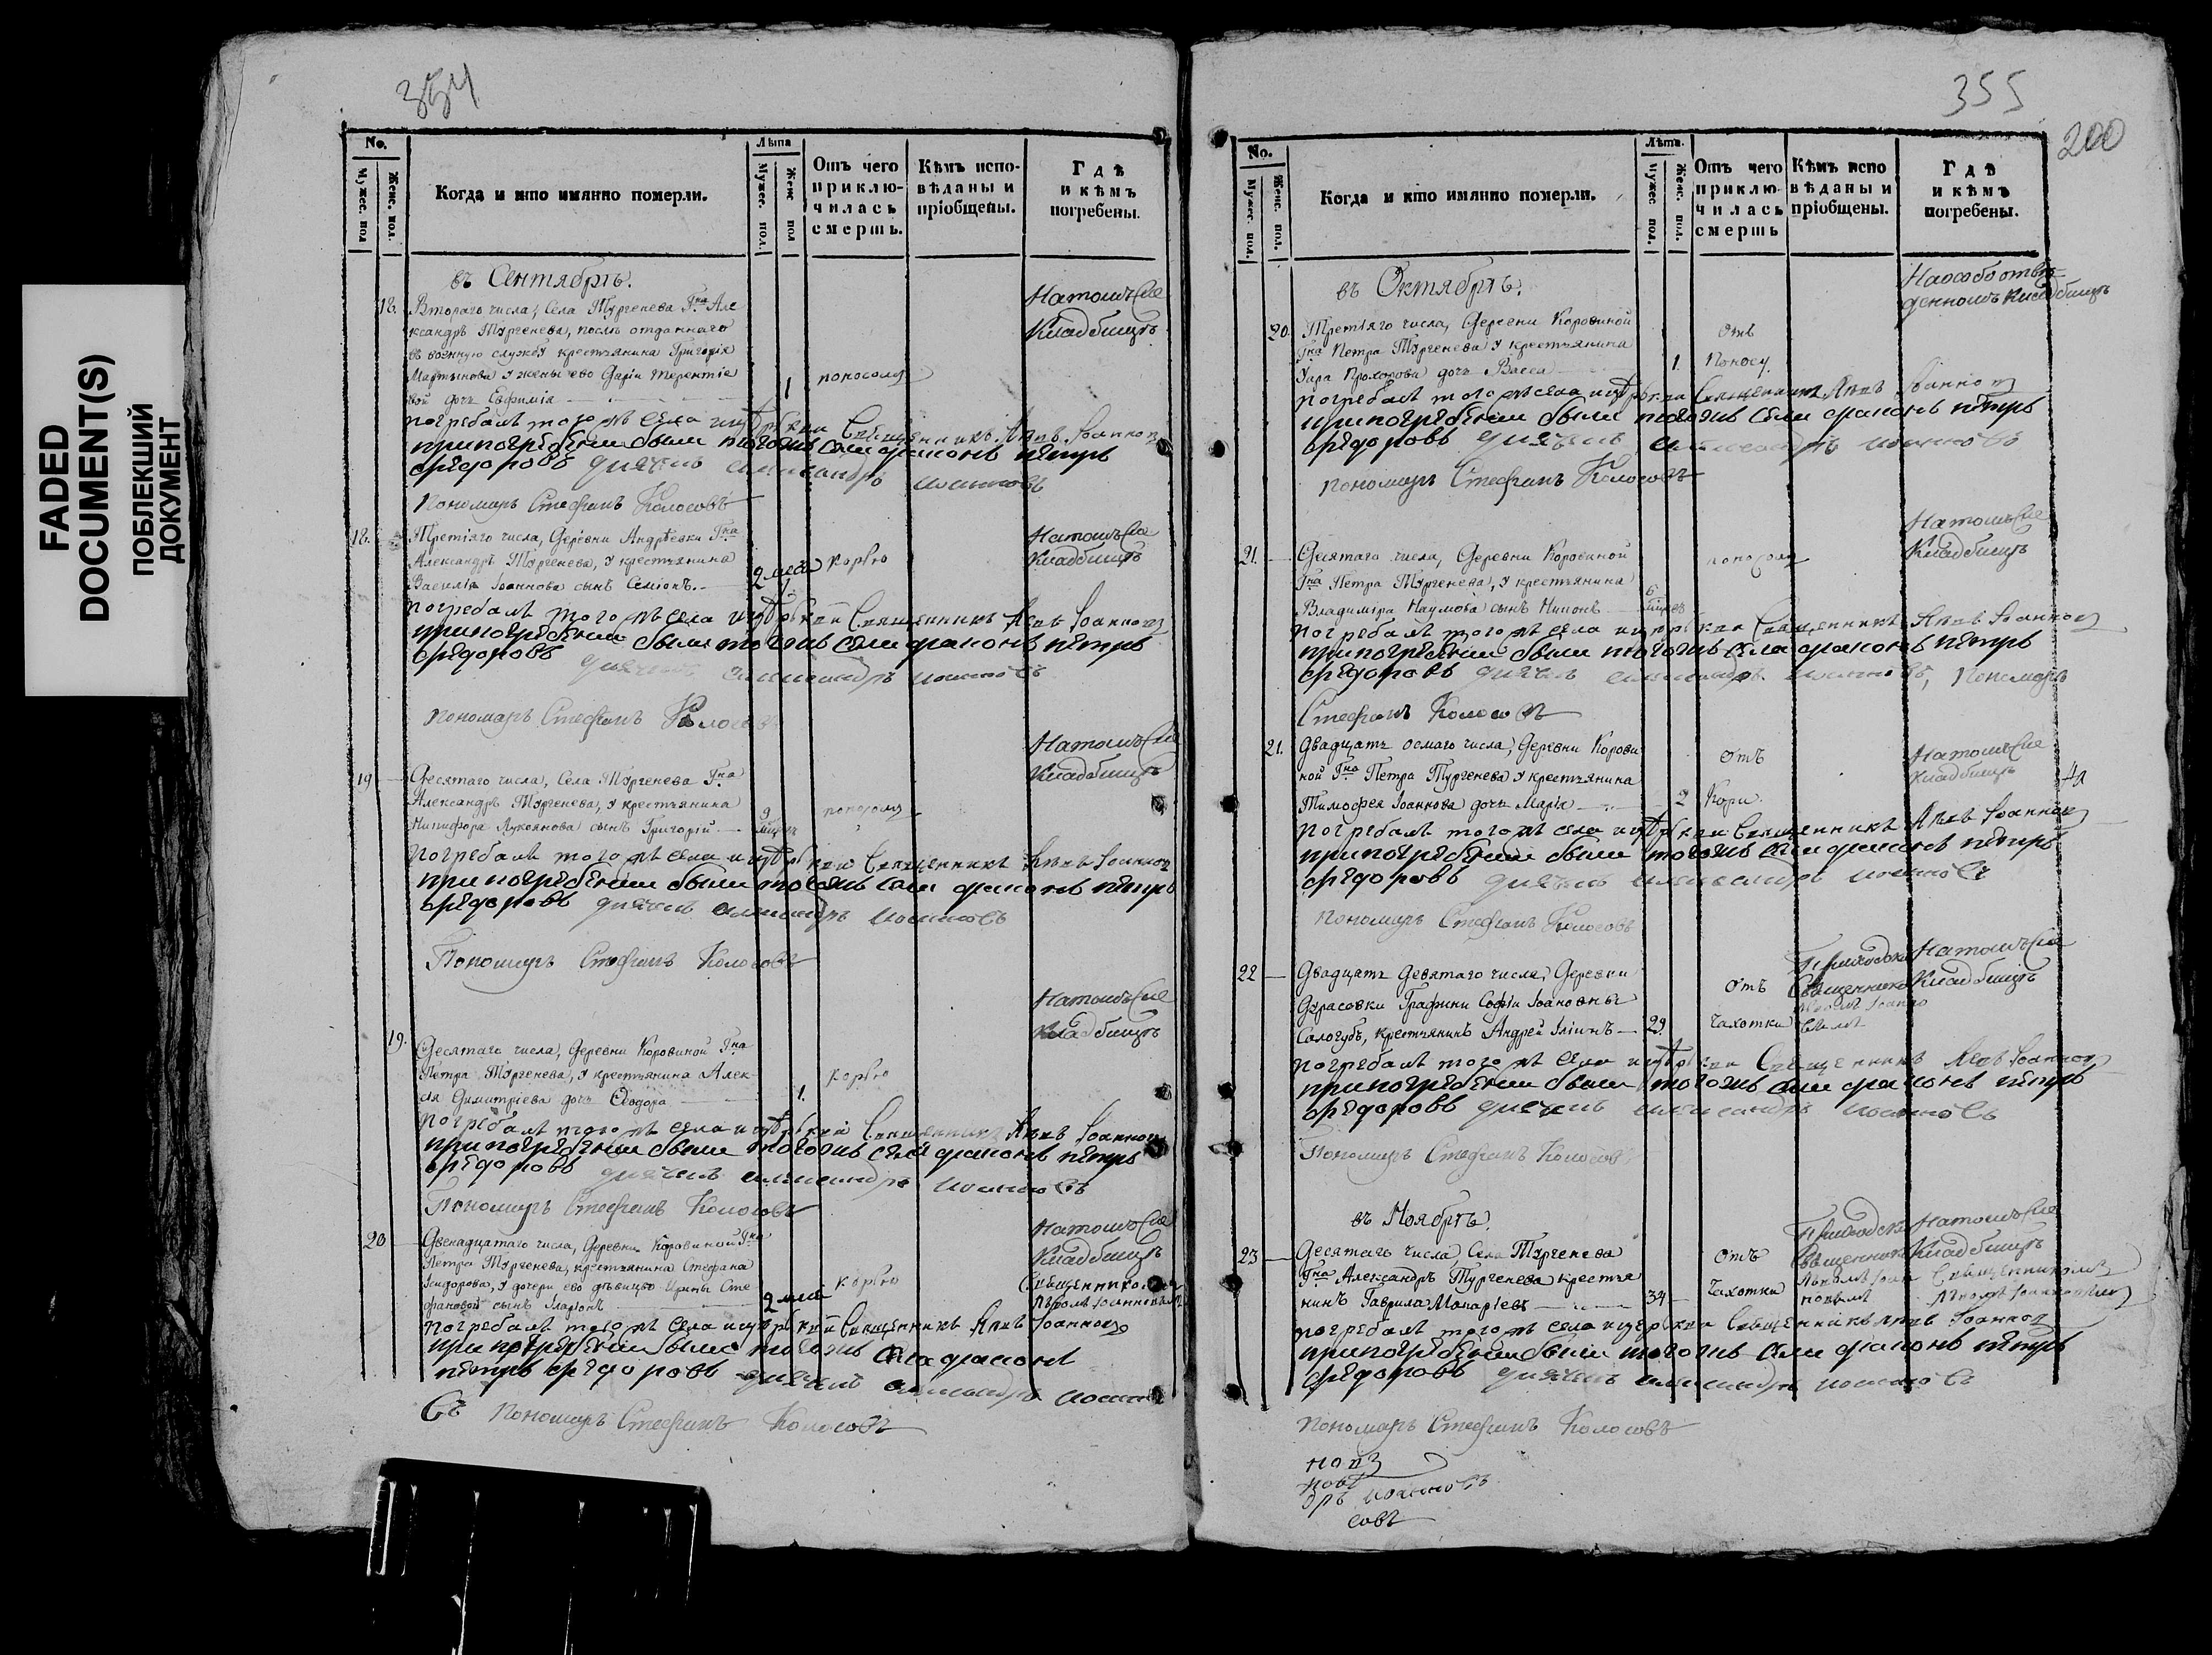 FADED
DOCUMENT(S)
ПОБЛЕКШИЙ
ДОКУМЕНТ
354
No.
Мужес. пол
Женс. пол.
Когда и кто имянно померли.
Лѣта
Мужес. пол.
Женс пол
Отъ чего
приклю-
чилась
смерть.
Кѣмъ испо-
вѣданы и
пріобщены.
Гдѣ
и кѣмъ
погребены.
въ Сентябрѣ.
18. Втораго числа, Села Тургенева Гна Але
ксандръ Тургенева, послѣ отданнаго
въ военную службу крестьянина Григорія
Мартынова у жены ево Даріи Терентіе
вой дочь Евфимія 1 поносомъ
На томъ же
Кладбищѣ
погребалъ того жъ села Священникъ Іоанновъ
при погребеніи были тогожъ села діаконъ петръ
ѳедоровъ дьячекъ александръ іоанновъ
Пономарь Стефанъ Колосовъ
18. Третіяго числа, Деревни Андрѣевки Гна
Александръ Тургенева, у крестьянина
Василія Іоаннова сынъ Семіонъ. 2 корью
На томъ же
Кладбищѣ
погребалъ того жъ села Священникъ Іоанновъ
при погребеніи были тогожъ села діаконъ петръ
ѳедоровъ дьячекъ александръ іоанновъ
пономарь Стефанъ Колосовъ
19 Десятаго числа, Села Тургенева Гна
Александръ Тургенева, у крестьянина
Никифора Лукоянова сынъ Григорій 9 поносомъ
На томъ же
Кладбищѣ
погребалъ того жъ села Священникъ Іоанновъ
при погребеніи были тогожъ села діаконъ петръ
ѳедоровъ дьячекъ александръ іоанновъ
Пономарь Стефанъ Колосовъ
19. Десятаго числа, Деревни Коровиной Гна
Петра Тургенева, у крестьянина Алек
ѣя Димитріева дочь Ѳеодора 1. корью
На томъ же
Кладбищѣ
погребалъ того жъ села Священникъ Іоанновъ
при погребеніи были тогожъ села діаконъ петръ
ѳедоровъ дьячекъ александръ іоанновъ
Пономарь Стефанъ Колосовъ
20 Двенадцатаго числа, Деревни Коровиной Гна
Петра Тургенева, крестьянина Стефана
Исидорова, у дочери ево дѣвицы Ирины Сте
фановой сынъ Иларіонъ 2 корью
На томъ же
Кладбищѣ
Священникомъ
погребалъ того жъ села Священникъ Іоанновъ
при погребеніи были тогожъ села діаконъ
петръ ѳедоровъ дьячекъ александръ іоанно
въ пономарь Стефанъ Колосовъ
355
200
No.
Мужес. пол.
Женс. пол.
Когда и кто имянно померли.
Лѣта.
Мужес пол.
Женс. пол.
Отъ чего
приклю-
чилась
смерть
Кѣмъ испо
вѣданы и
пріобщены.
Гдѣ
и кѣмъ
погребены.
въ Октябрѣ.
20. Третіяго числа, Деревни Коровиной
Гна Петра Тургенева у крестьянина
Уара Прохорова дочь Васса 1. отъ
Поносу.
На особо отве
денномъ Кладбищѣ
погребалъ того жъ села Священникъ Іоанновъ
при погребеніи были тогожъ села діаконъ петръ
ѳедоровъ дьячекъ александръ іоанновъ
пономарь Стефанъ Колосовъ
21. Десятаго числа, Деревни Коровиной
Гна Петра Тургенева, у крестьянина
Владиміра Наумова сынъ Никонъ 6 поносомъ
На томъ же
Кладбищѣ
погребалъ того жъ села Священникъ Іоанновъ
при погребеніи были тогожъ села діаконъ петръ
ѳедоровъ дьячекъ александръ іоанновъ, пономарь
Стефанъ Колосовъ
21. Двадцать осмаго числа, Деревни Корови
ной Гна Петра Тургенева у крестьянина
Тимофея Іоаннова дочь Марія 2 отъ
Кори.
На томъ же
Кладбищѣ
погребалъ того жъ села Священникъ Іоанновъ
при погребеніи были тогожъ села діаконъ петръ
ѳедоровъ дьячекъ александръ іоанновъ
пономарь Стефанъ Колосовъ
22 Двадцать девятаго числа, Деревни
Графини Софіи Іоановны
Сологубъ, крестьянинъ Андрей Іліинъ 29. отъ
чахотки
Священнико
На томъ же
Кладбищѣ
погребалъ того жъ села Священникъ Іоанновъ
при погребеніи были тогожъ села діаконъ петръ
ѳедоровъ дьячекъ александръ іоанновъ
Пономарь Стефанъ Колосовъ
въ Ноябрѣ.
23 Десятаго числа, Села Тургенева
Гна Александръ Тургенева крестья
нинъ Гаврила Макаріевъ 34 отъ
Чахотки
Священнико
На томъ же
Кладбищѣ
Священникомъ
погребалъ того жъ села Священникъ Іоанновъ
при погребеніи были тогожъ села діаконъ петръ
ѳедоровъ дьячекъ александръ іоанновъ
пономарь Стефанъ Колосовъ
дръ іоанновъ
совъ